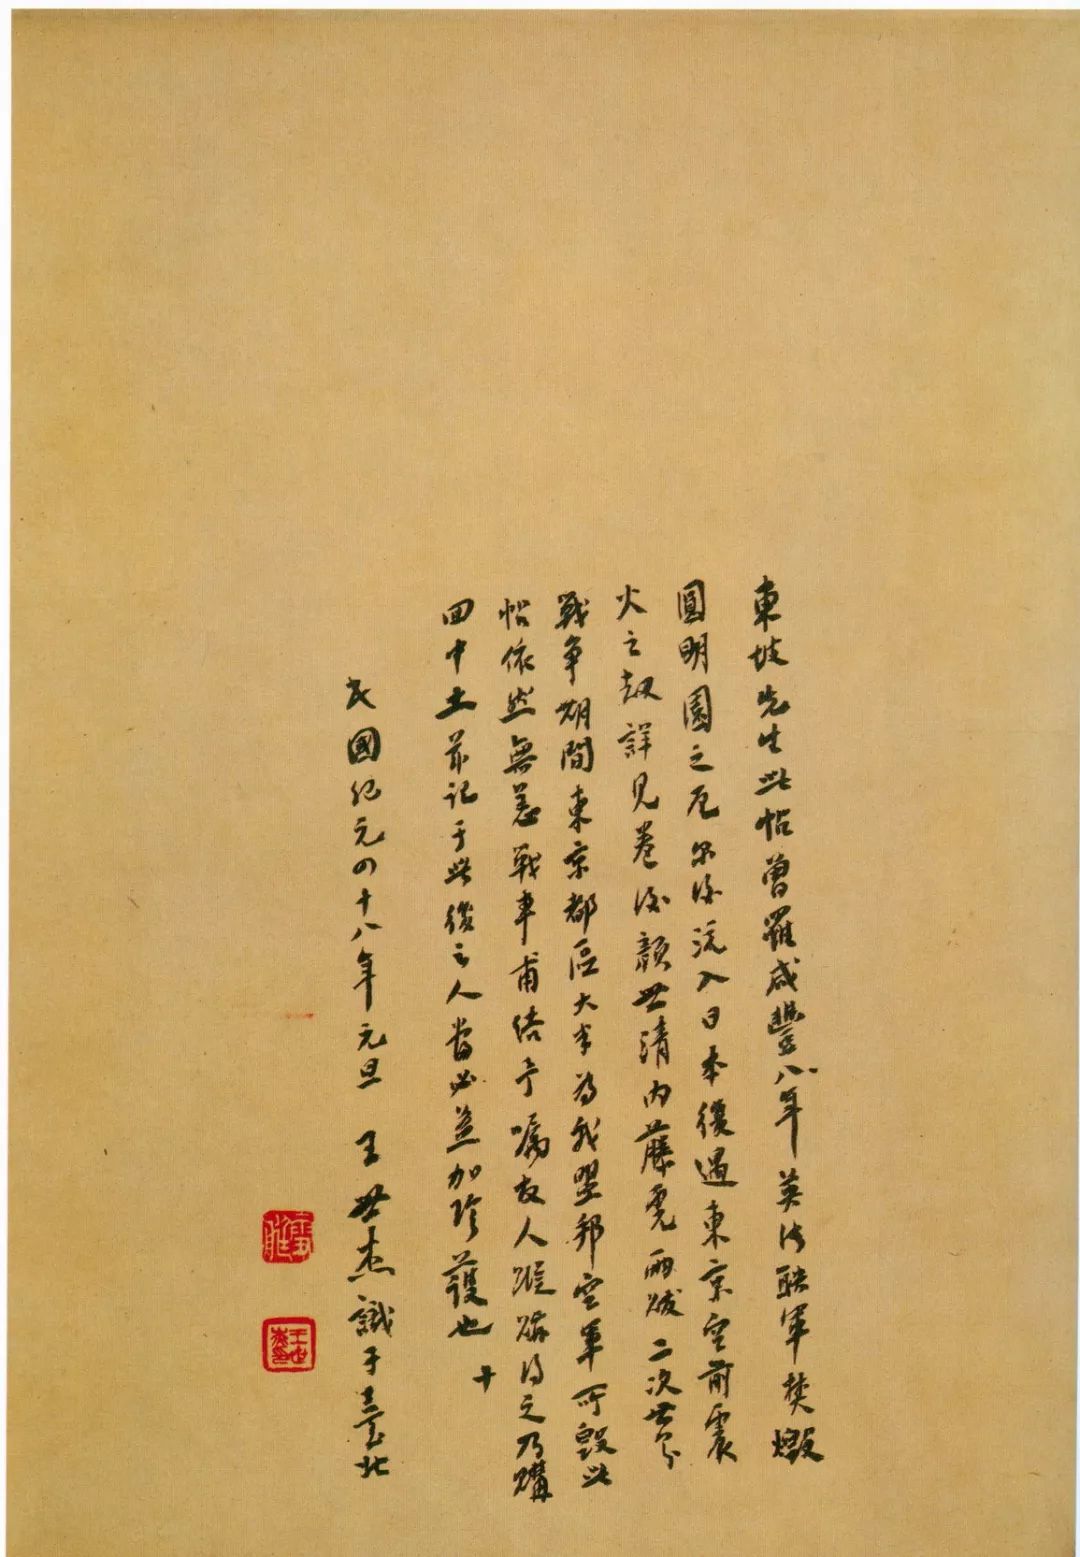 東坡先生此帖曾罹咸豐八年英法聯軍焚燬
圓明園之厄尔後流入日本復遇東京空前震
火之劫詳見卷後顏世清內藤虎兩跋二次世界
戰爭期間東京都區大半為我盟邦空軍所毀此
帖依然無恙戰事甫結予囑友人蹤跡得之乃購
回中土並記于此後之人當必益加珍護也
十
民國紀元四十八年元旦 王世杰識于臺北
雪艇
王世杰印